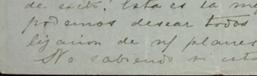 de exito! Esta es la me
podemos desear todos
ligacion de n/ planes
No sabiendo si est